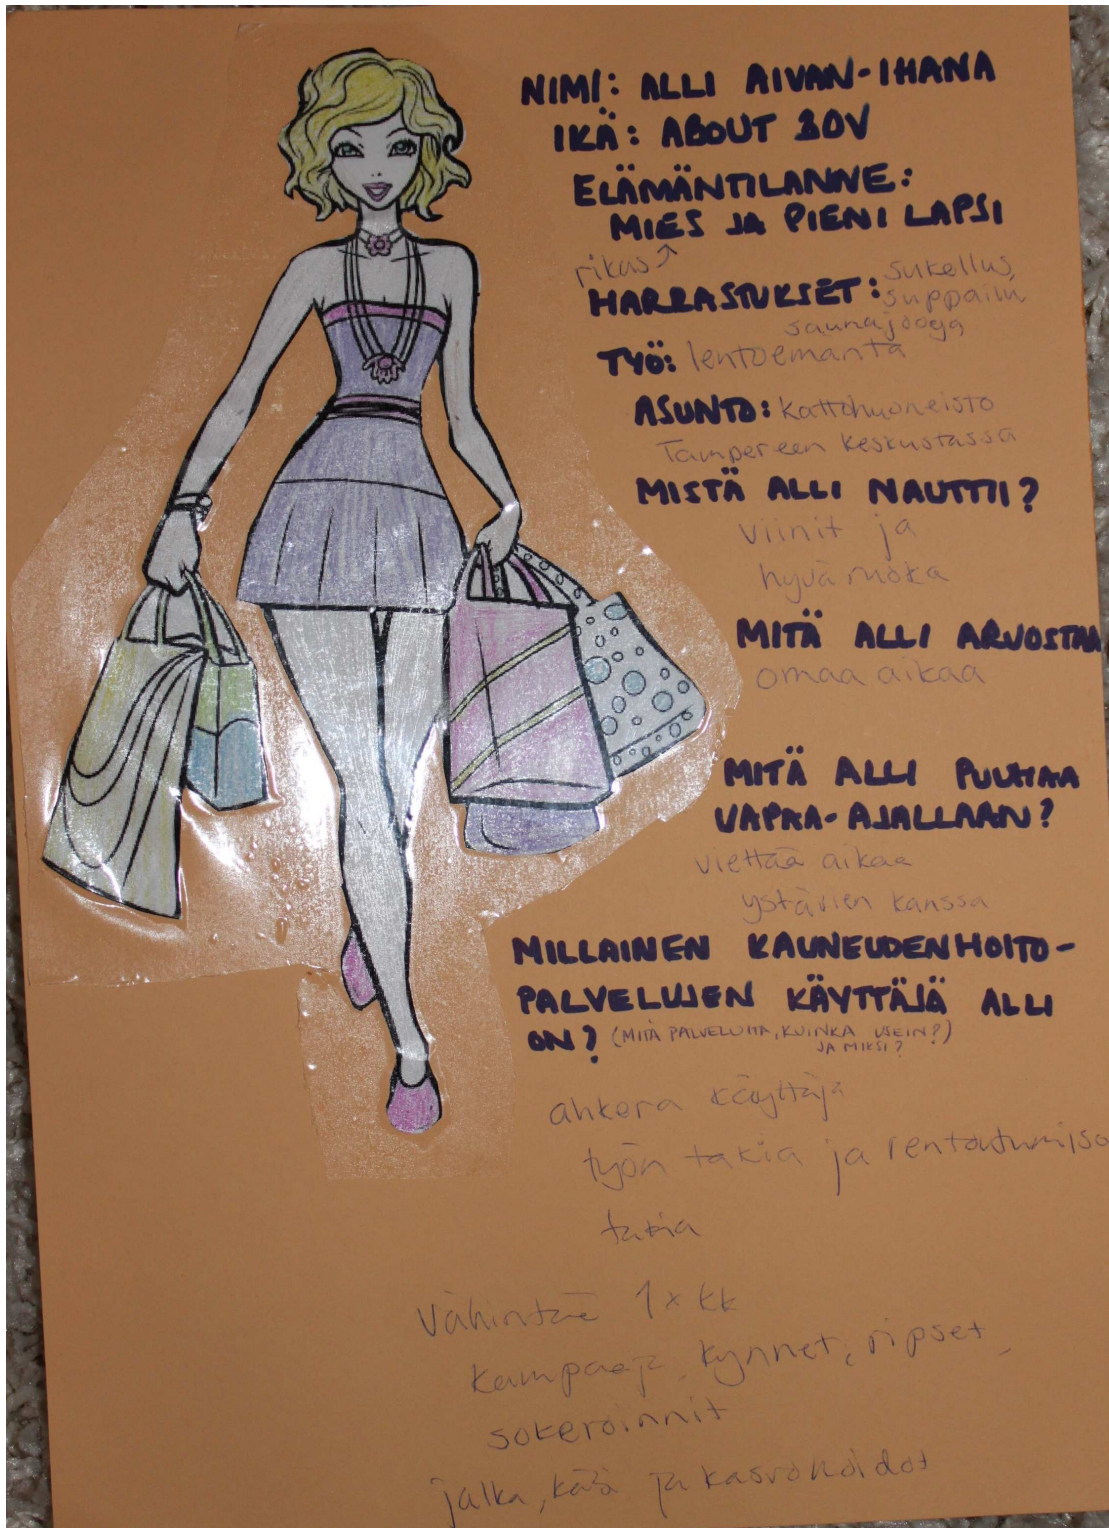 NIMI: ALLI AIVAN-IHANA
IKÄ: ABOUT 30V
ELÄMÄNTILANNE:
MIES JA PIENI LAPSI
rikas
HARRASTUKSET: sukellus,
suppailu
saunajooga
TYÖ: lentoemäntä
ASUNTO: kattohuoneisto
Tampereen keskustassa
MISTÄ ALLI NAUTTII?
viinit ja
hyvä ruoka
MITÄ ALLI ARVOSTAA
omaa aikaa
MITÄ ALLI PUUHAA
VAPAA-AJALLAAN?
viettää aikaa
ystävien kanssa
MILLAINEN KAUNEUDENHOITO-
PALVELUJEN KÄYTTÄJÄ ALLI
ON? (MITÄ PALVELUITA, KUINKA USEIN?)
JA MIKSI?
ahkera käyttäjä
työn takia ja rentoutumise
takia
Vähintää 1x kk
kampaaja, kynnet, ripset,
sokeroinnit
jalka, käsi ja kasvohoidot